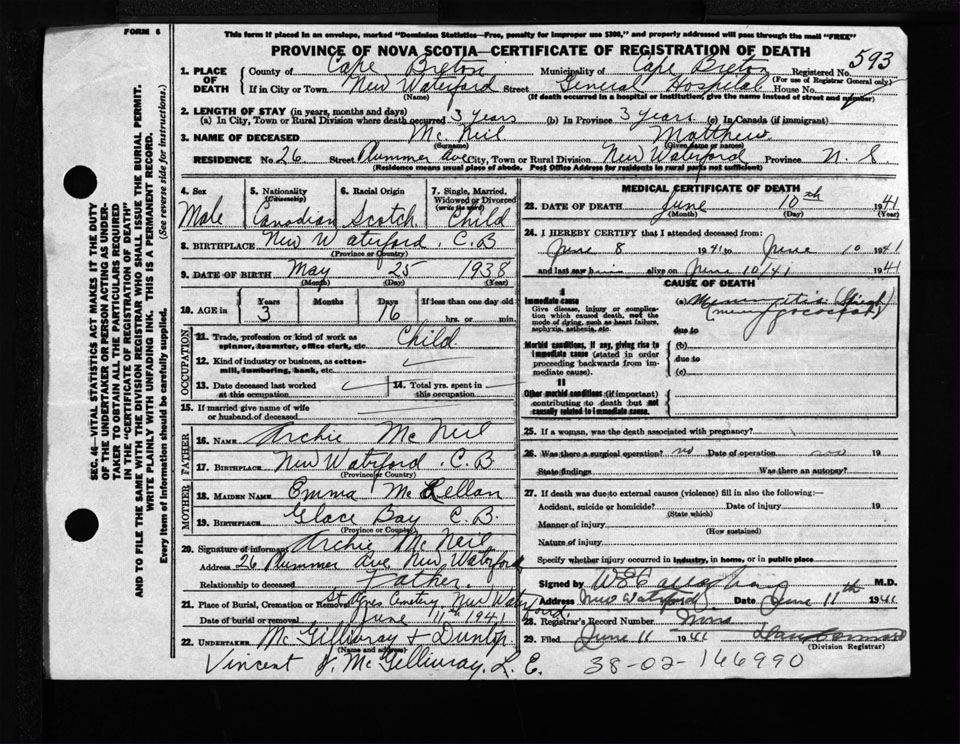 FORM 6
This form if placed in an envelope, marked "Dominion Statistics—Free, penalty for improper use $300," and properly addressed will pass through the mail "FREE"
PROVINCE OF NOVA SCOTIA—CERTIFICATE OF REGISTRATION OF DEATH
593
1. PLACE OF DEATH County of Cape Breton Municipality of Cape Breton Registered No.
(For use of Registrar General only)
If in City or Town New Waterford Street General Hospital House No.
(Name) (If death occurred in a hospital or institution, give the name instead of street and number)
2. LENGTH OF STAY (in years, months and days)
(a) In City, Town or Rural Division where death occurred 3 years (b) In Province 3 years (c) In Canada (if immigrant)
3. NAME OF DECEASED Mc Neil Matthew
(Surname) (Given name or names)
RESIDENCE No. 26 Street Plummer Ave City, Town or Rural Division New Waterford Province N. S.
(Residence means usual place of abode. Post Office Address for residents in rural parts not sufficient)
4. Sex Male
5. Nationality (Citizenship) Canadian
6. Racial Origin Scotch
7. Single, Married, Widowed or Divorced (write the word) Child
8. BIRTHPLACE New Waterford, C.B
(Province or Country)
9. DATE OF BIRTH May 25 1938
(Month) (Day) (Year)
10. AGE in Years 3 Months Days 16 If less than one day old hrs. or min.
OCCUPATION
11. Trade, profession or kind of work as spinner, teamster, office clerk, etc. Child
12. Kind of industry or business, as cotton-mill, lumbering, bank, etc.
13. Date deceased last worked at this occupation
14. Total yrs. spent in this occupation
15. If married give name of wife or husband of deceased
FATHER
16. NAME Archie Mc Neil
17. BIRTHPLACE New Waterford, C.B
(Province or Country)
MOTHER
18. MAIDEN NAME Emma McLellan
19. BIRTHPLACE Glace Bay C.B.
(Province or Country)
20. Signature of informant Archie Mc Neil
Address 26 Plummer Ave New Waterford
Relationship to deceased Father.
21. Place of Burial, Cremation or Removal St Agnes Cemetery New Waterford.
Date of burial or removal June 11th 1941
22. UNDERTAKER Mc Gillivray & Dunlop.
(Name and address)
Vincent J. Mc Gillivray, L. E.
MEDICAL CERTIFICATE OF DEATH
23. DATE OF DEATH June 10th 1941
(Month) (Day) (Year)
24. I HEREBY CERTIFY that I attended deceased from:
June 8 1941 to June 10 1941
and last saw him alive on June 10/41 1941
CAUSE OF DEATH
I
Immediate cause
Give disease, injury or complication which caused death, not the mode of dying, such as heart failure, asphyxia, asthenia, etc.
(a) Meningitis
due to
Morbid conditions, if any, giving rise to immediate cause (stated in order proceeding backwards from immediate cause).
(b)
due to
(c)
II
Other morbid conditions (if important) contributing to death but not causally related to immediate cause.
25. If a woman, was the death associated with pregnancy?
26. Was there a surgical operation? no Date of operation 19
State findings Was there an autopsy?
27. If death was due to external causes (violence) fill in also the following:—
Accident, suicide or homicide? Date of injury 19
(State which)
Manner of injury
(How sustained)
Nature of injury
Specify whether injury occurred in industry, in home, or in public place
Signed by M.D.
Address New Waterford Date June 11th 1941
28. Registrar's Record Number
29. Filed June 11 1941
(Division Registrar)
38-02-166990
SEC. 46—VITAL STATISTICS ACT MAKES IT THE DUTY
OF THE UNDERTAKER OR PERSON ACTING AS UNDER-
TAKER "TO OBTAIN ALL THE PARTICULARS REQUIRED
IN THE "CERTIFICATE OF REGISTRATION OF DEATH"
AND TO FILE THE SAME WITH THE DIVISION REGISTRAR WHO SHALL ISSUE THE BURIAL PERMIT.
WRITE PLAINLY WITH UNFADING INK. THIS IS A PERMANENT RECORD.
Every item of information should be carefully supplied. (See reverse side for instructions.)